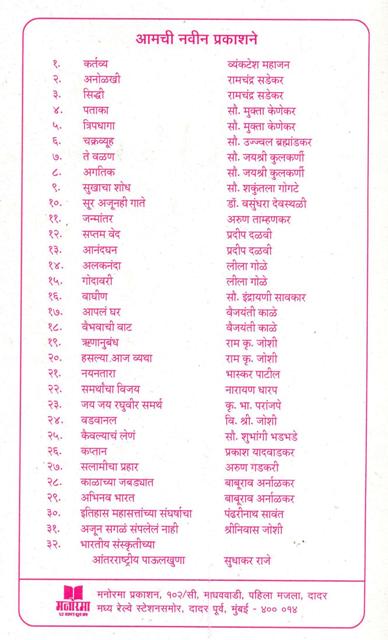 आमची नवीन प्रकाशने
१. कर्तव्य व्यंकटेश महाजन
२. अनोळखी रामचंद्र सडेकर
३. सिद्धी रामचंद्र सडेकर
४. पताका सौ. मुक्ता केणेकर
५. त्रिपधागा सौ. मुक्ता केणेकर
६. चक्रव्यूह सौ. उज्ज्वल ब्रह्मांडकर
७. ते वळण सौ. जयश्री कुलकर्णी
८. अगतिक सौ. जयश्री कुलकर्णी
९. सुखाचा शोध सौ. शकुंतला गोगटे
१०. सूर अजूनही गाते डॉ. वसुंधरा देवस्थळी
११. जन्मांतर अरुण ताम्हणकर
१२. सप्तम वेद प्रदीप दळवी
१३. आनंदघन प्रदीप दळवी
१४. अलकनंदा लीला गोळे
१५. गोदावरी लीला गोळे
१६. वाघीण सौ. इंद्रायणी सावकार
१७. आपलं घर वैजयंती काळे
१८. वैभवाची वाट वैजयंती काळे
१९. ऋणानुबंध राम कृ. जोशी
२०. हसल्या आज व्यथा राम कृ. जोशी
२१. नयनतारा भास्कर पाटील
२२. समर्थांचा विजय नारायण धारप
२३. जय जय रघुवीर समर्थ कृ. भा. परांजपे
२४. वडवानल वि. श्री. जोशी
२५. कैवल्याचं लेणं सौ. शुभांगी भडभडे
२६. कप्तान प्रकाश यादवाडकर
२७. सलामीचा प्रहार अरुण गडकरी
२८. काळाच्या जबड्यात बाबूराव अर्नाळकर
२९. अभिनव भारत बाबूराव अर्नाळकर
३०. इतिहास महासत्तांच्या संघर्षाचा पंढरीनाथ सावंत
३१. अजून सगळं संपलेलं नाही श्रीनिवास जोशी
३२. भारतीय संस्कृतीच्या
आंतरराष्ट्रीय पाऊलखुणा सुधाकर राजे
मनोरमा
मनोरमा प्रकाशन, १०२/सी, माधववाडी, पहिला मजला, दादर
मध्य रेल्वे स्टेशनसमोर, दादर पूर्व, मुंबई - ४०० ०१४